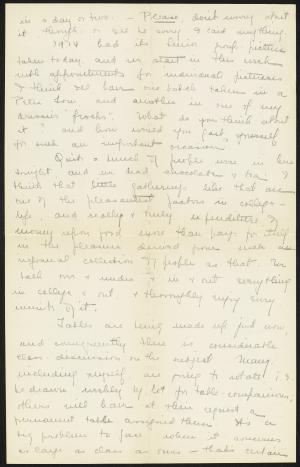 in a day or two. — Please don't worry about
it though, or I'll be sorry I said anything.
1914 had its Junior group picture
taken today, and we start in this week
with appointments for individual pictures
I think I'll have one batch taken in a
Peter Tom and another in one of my
dressier "frocks". What do you think about
it, and how would you garb yourself
for such an important occasion?
Quite a bunch of people were in here
tonight, and we had chocolate & tea. I
think that little gatherings like that are
one of the pleasantest factors in college-
life, and really & truly expenditure of
money upon food more than pays for itself
in the pleasure derived from such an
informal collection of people as that. We
talk over & under & in & out everything
in college & out, & thoroughly enjoy every
minute of it.
Tables are being made up just now,
and consequently there is considerable
class discussion on the subject. Many
including myself are going to rotate i.e.
be drawn weekly by lot for table-companions,
others will have at their request a
permanent table assigned them. It's a
big problem to face when it concerns
as large as class as ours — that's certain